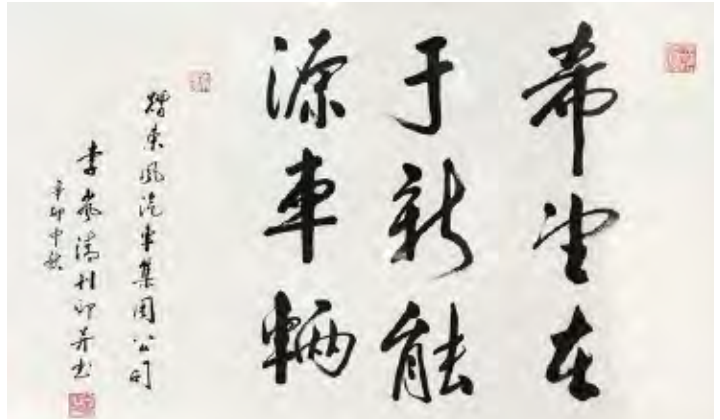 希望在
于新能
源車輛
赠東風汽車集团公司
李岚清刊印并书
辛卯中秋